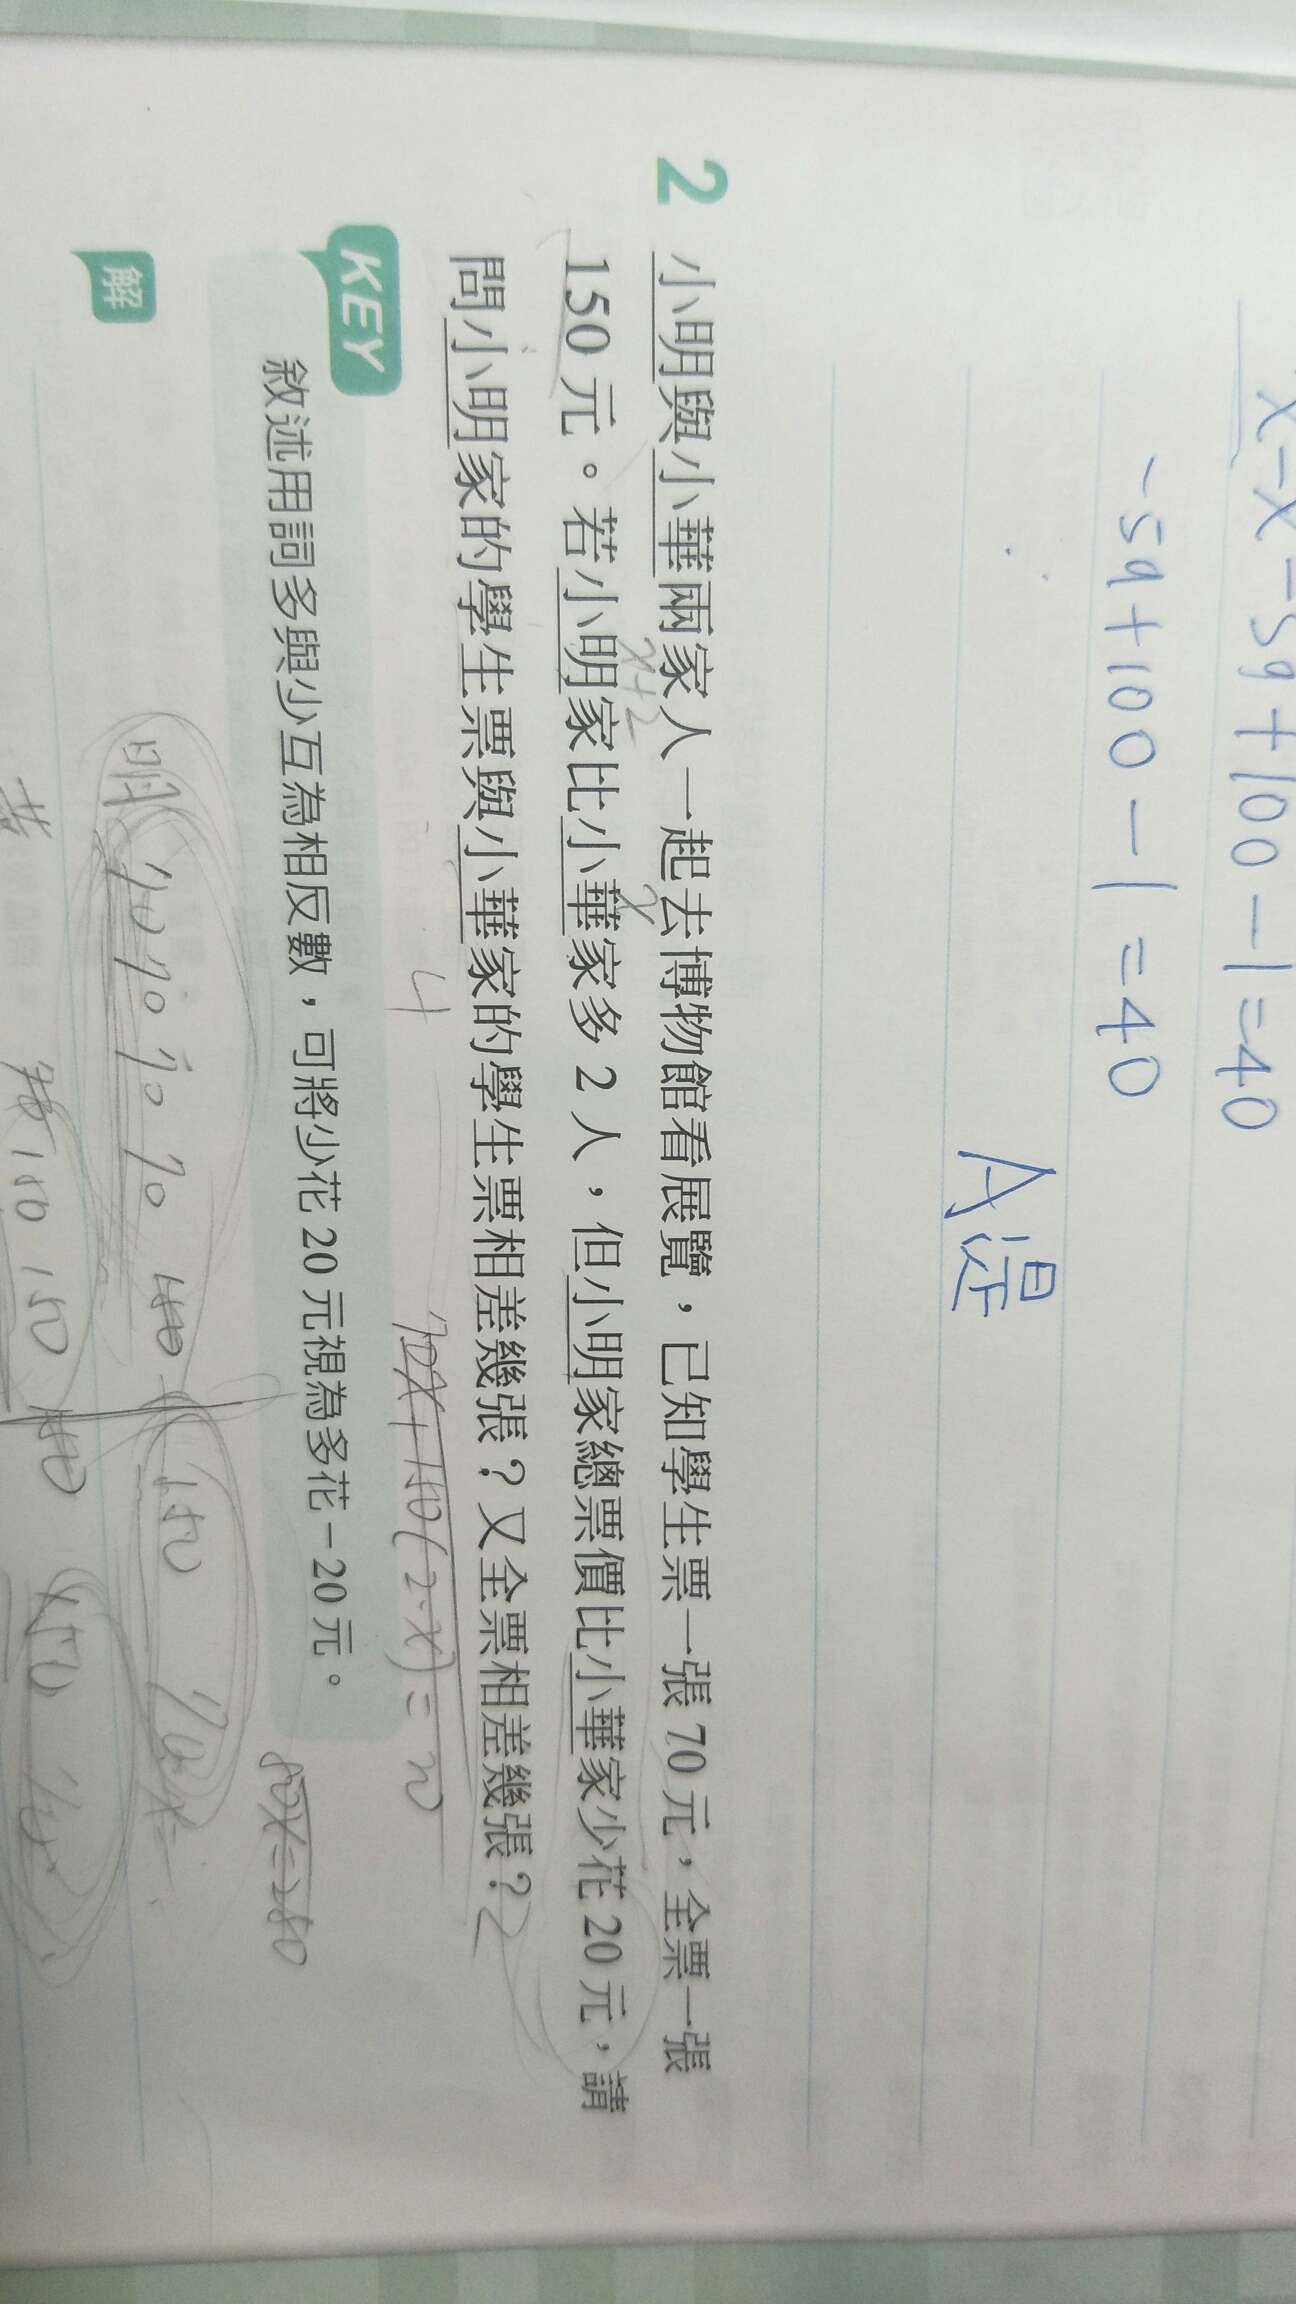 x-x-5y+100-1=40
-5y+100-1=40
A是
2 小明與小華兩家人一起去博物館看展覽，已知學生票一張70元，全票一張
x+2 x
150元。若小明家比小華家多2人，但小明家總票價比小華家少花20元，請
問小明家的學生票與小華家的學生票相差幾張？又全票相差幾張？2
4 70x+150(2-x)=n
KEY
敘述用詞多與少互為相反數，可將少花20元視為多花－20元。
80x=280
解
明 70 70 70 70 150 150 70x=
150 150 150 150